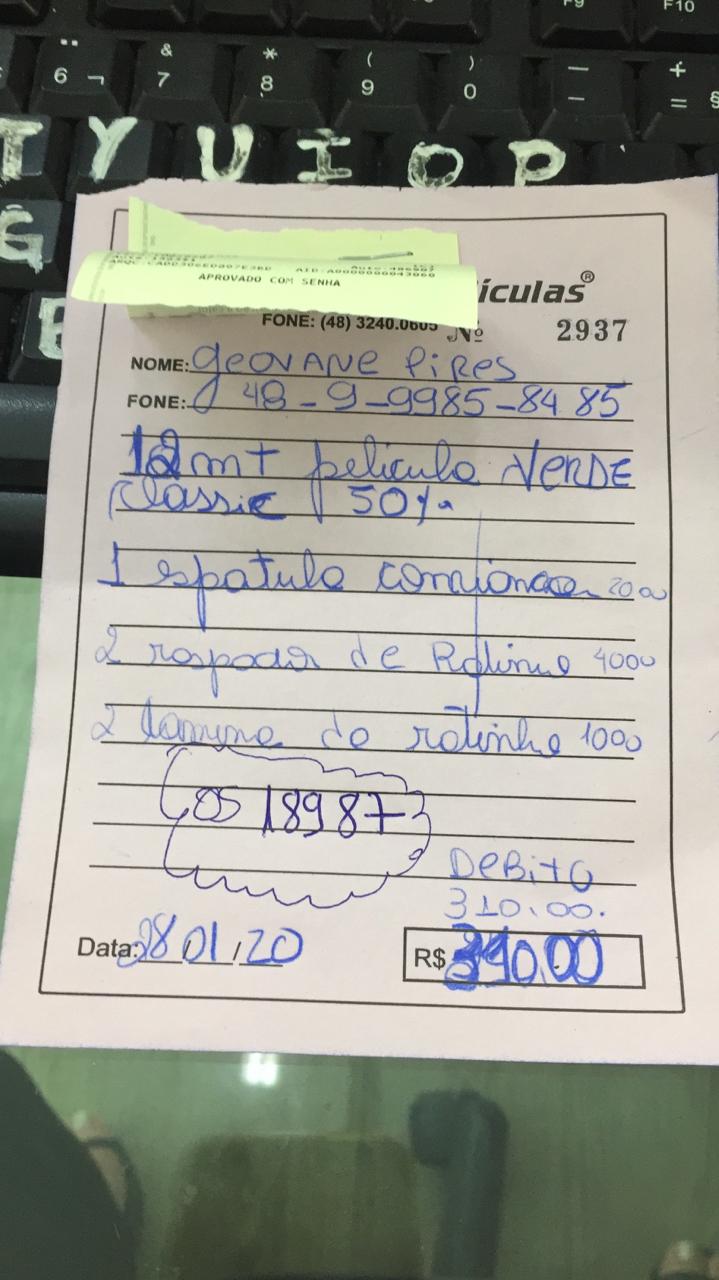 F9
F10
& 7
* 8
( 9
) 0
¨ 6 ¬
— -
+ = §
T Y U I O P
G
APROVADO COM SENHA
ículas®
FONE: (48) 3240.0605 Nº 2937
NOME: Geovane Pires
FONE: 48-9-9985-8485
12 mt pelicula VERDE
Classic 50%
1 espatula 2000
2 raspador de Ratinho 4000
2 lamina do ratinho 1000
OS 18987
DeBito
310.00.
Data: 28/01/20 R$ 00